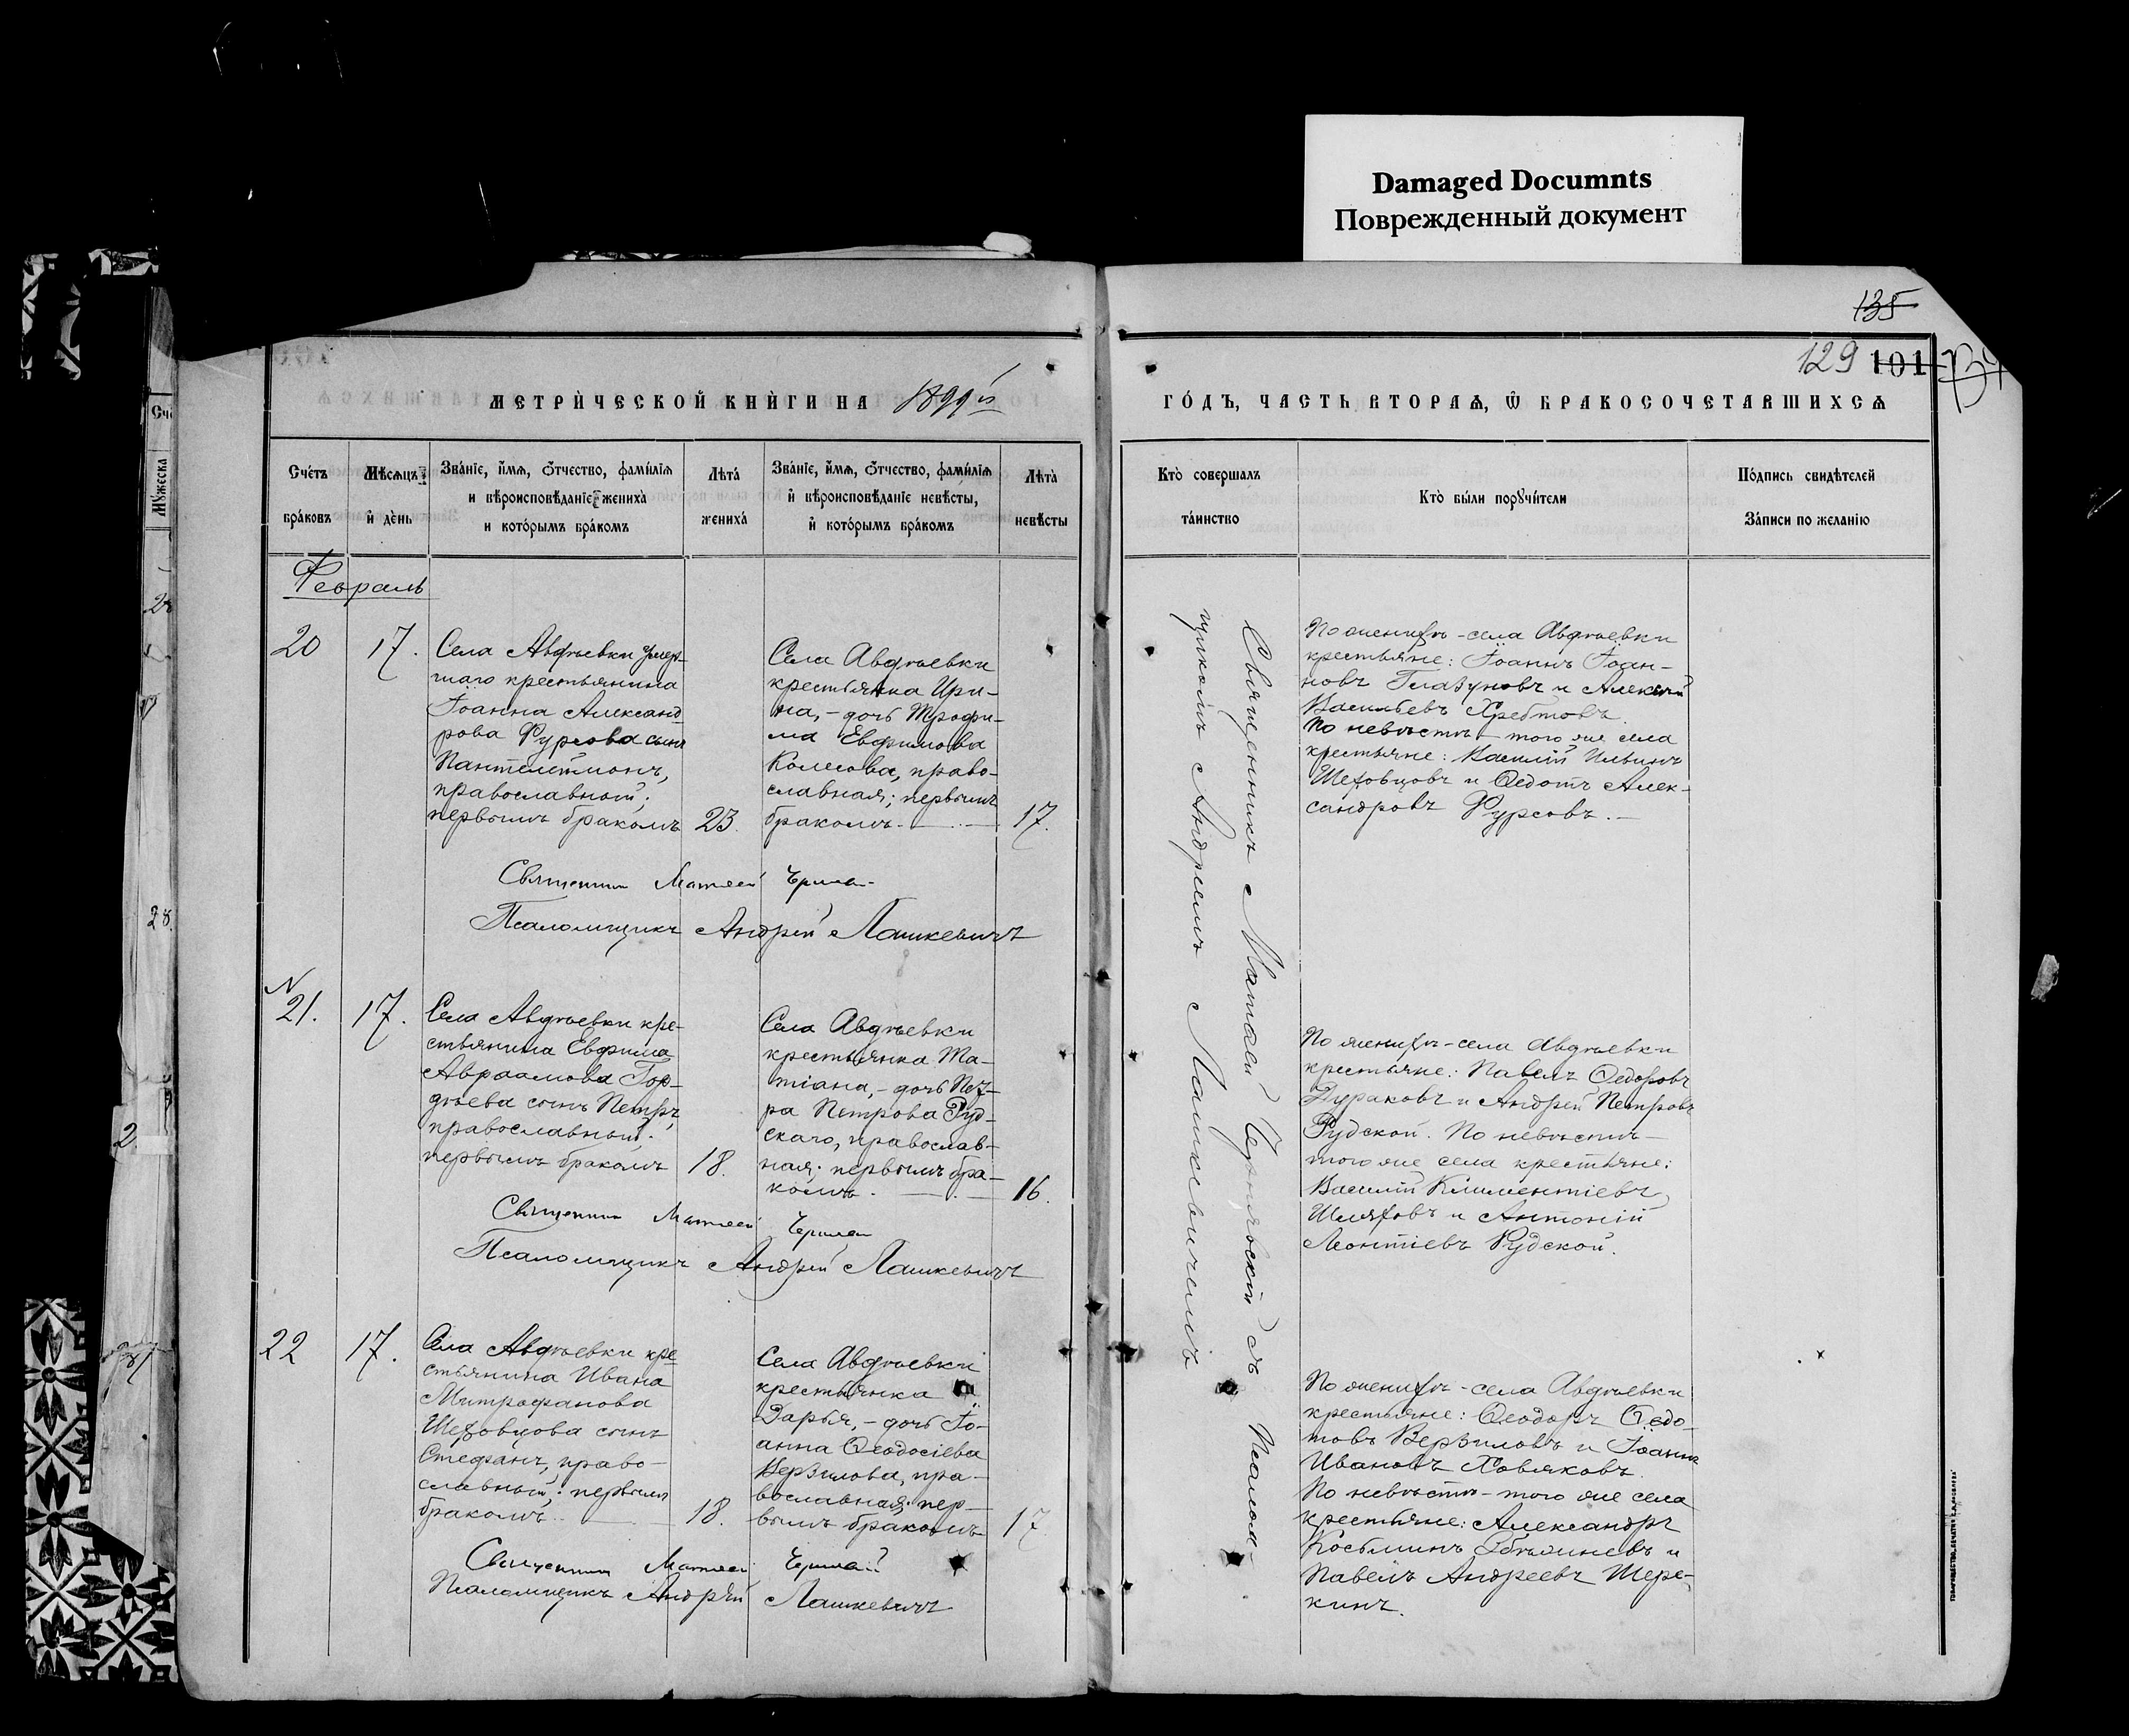 Damaged Documnts
Поврежденный документ
135
129 101 134
МЕТРИ́ЧЕСКОЙ КНИ́ГИ НА 1899й
ГО́ДЪ, ЧАСТЬ ВТОРАѦ, Ѿ БРАКОСОЧЕТАВШИХСѦ
Сче́тъ бра́ковъ
Мѣ́сѧцъ и де́нь
Зва́нїе, и́мѧ, ѻ́тчество, фами́лїѧ и вѣроисповѣ́данїе жениха̀ и кото́рымъ бра́комъ
Лѣта̀ жениха̀
Зва́нїе, и́мѧ, ѻ́тчество, фами́лїѧ и вѣроисповѣ́данїе невѣ́сты, и кото́рымъ бра́комъ
Лѣта̀ невѣ́сты
Кто̀ соверша́лъ та́инство
Кто̀ бы́ли порꙋчи́тели
По́дпись свидѣ́телей за́писи по жела́нїю
Февраль
20
17.
Села Авдѣевки умер-
шаго крестьянина
Іоанна Александ-
рова Фурсова сынъ
Пантелеймонъ,
православный;
первымъ бракомъ
23.
Села Авдѣевки
крестьянка Ири-
на, - дочь Трофи-
ма Евфимова
Колесова, право-
славная; первымъ
бракомъ.
17.
По женихѣ - села Авдѣевки
крестьяне: Іоаннъ Іоан-
новъ Глазуновъ и Алексѣй
Васильевъ Хребтовъ.
По невѣстѣ - того же села
крестьяне: Василій Ильинъ
Шеховцовъ и Ѳедотъ Алек-
сандровъ Фурсовъ.
Священникъ Матѳей
Псаломщикъ Андрей Лашкевичъ
Священникъ Матѳей Чернявскій съ Псалом-
щикомъ Андреемъ Лашкевичемъ
N
21.
17.
Села Авдѣевки кре-
стьянина Евфима
Авраамова Гор-
дѣева сынъ Петръ,
православный;
первымъ бракомъ
18.
Села Авдѣевки
крестьянка Та-
тіана, - дочь Пет-
ра Петрова Руд-
скаго, православ-
ная; первымъ бра-
комъ.
16.
По женихѣ - села Авдѣевки
крестьяне: Павелъ Ѳедоровъ
Дураковъ и Андрей Петровъ
Рудской. По невѣстѣ -
того же села крестьяне:
Василій Климентіевъ
Шляховъ и Антоній
Леонтіевъ Рудской.
Священникъ Матѳей
Псаломщикъ Андрей Лашкевичъ
22
17.
Села Авдѣевки кре
стьянина Ивана
Митрофанова
Шеховцова сынъ
Стефанъ, право-
славный; первымъ
бракомъ.
18.
Села Авдѣевки
крестьянка
Дарья, - дочь Іо-
анна Ѳеодосіева
Верзилова, пра-
вославная; пер-
вымъ бракомъ
17.
По женихѣ - села Авдѣевки
крестьяне: Ѳеодоръ Ѳедо-
товъ Верзиловъ и Іоаннъ
Ивановъ Ховяковъ.
По невѣстѣ - того же села
крестьяне: Александръ
Косьминъ и
Павелъ Андреевъ Шере-
кинъ.
Священникъ Матѳей
Псаломщикъ Андрей Лашкевичъ